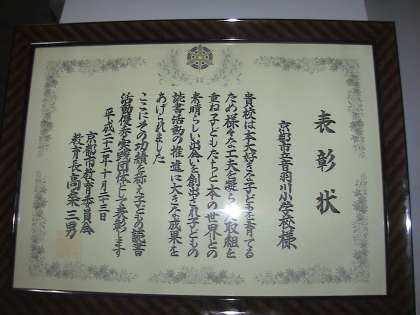 表彰状
京都市立音羽川小学校様
貴校は本大好きな子どもを育てる
ため様々な工夫を凝らした取組を
重ね子どもたちと本の世界との
素晴らしい出会いを創出され子どもの
読書活動の推進に大きな成果を
あげられました
ここにその功績を称え子どもの読書
活動優秀実践団体として表彰します
平成二十二年十月二十二日
京都市教育委員会
教育長高桒三男